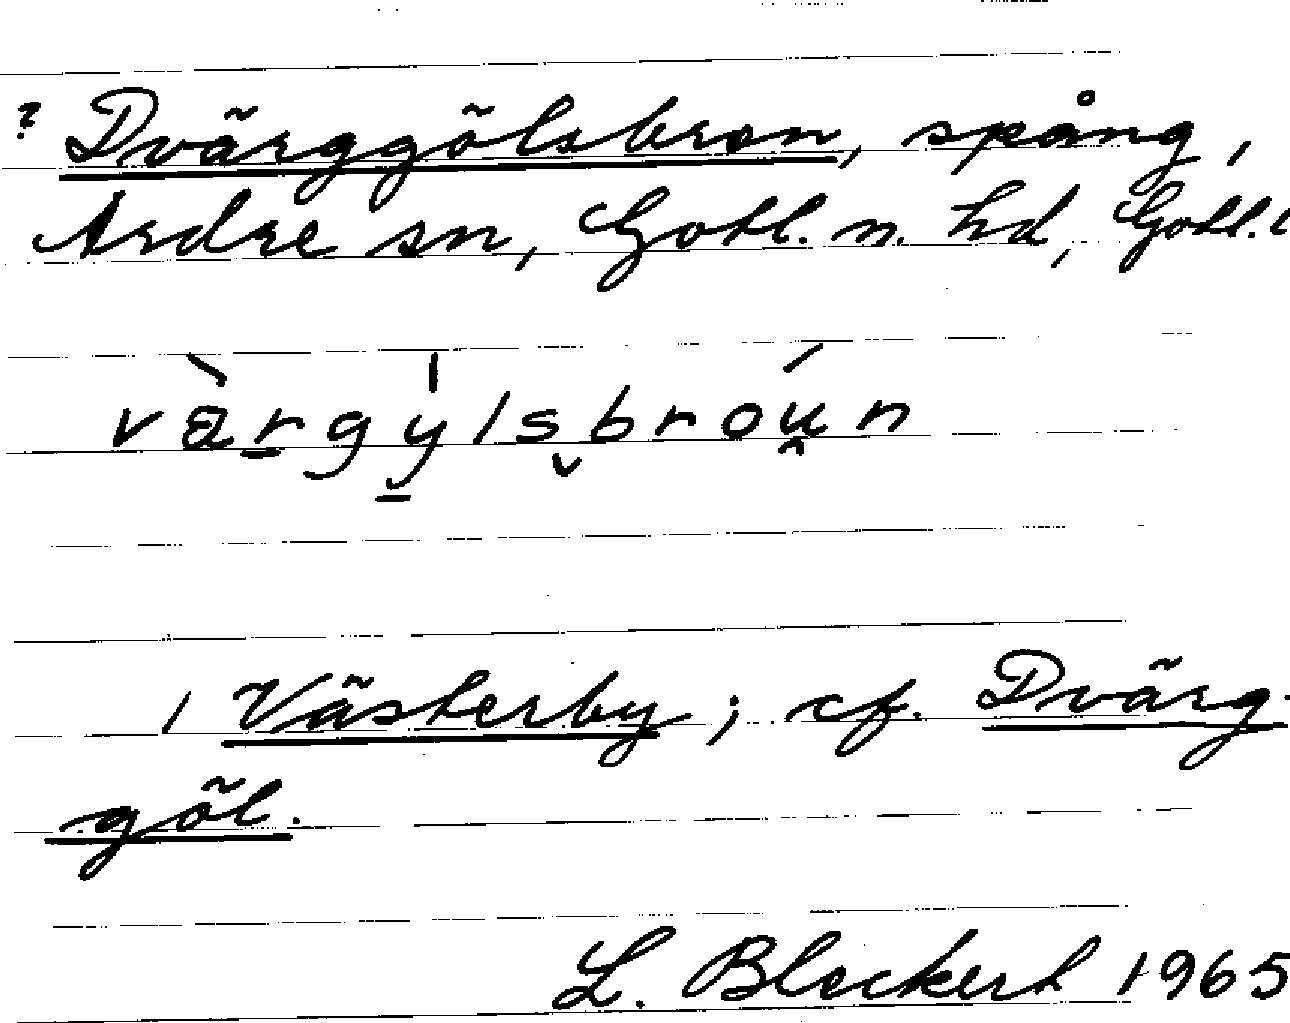 ? Dvärggölsbron, spång,
Ardre sn, Gotl. n. hd, Gotl. l
vàrgy̱lsbroún
i Västerby; cf. Dvärg-
göl.
L. Bleckert 1965